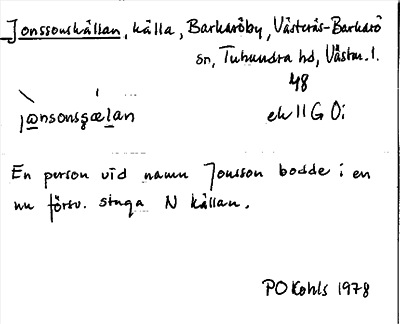 Jonssonskällan, källa, Barkaröby, Västerås-Barkarö
sn, Tuhundra hd, Västm. l.
48
jo̲nsonsgæl̲an
ek 11 G 0i
En person vid namn Jonsson bodde i en
nu försv. stuga N källan.
PO Kohls 1978